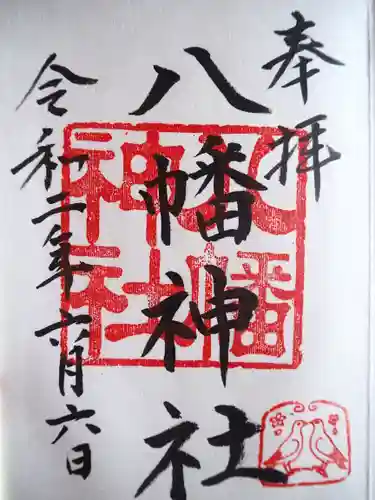 奉拝
八幡神社
令和二年六月六日
八幡神社